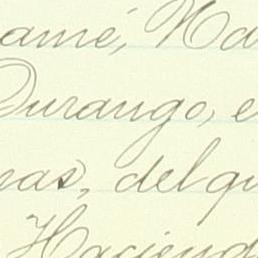 amé, Na
Durango, e
ras, del qu
Haciend